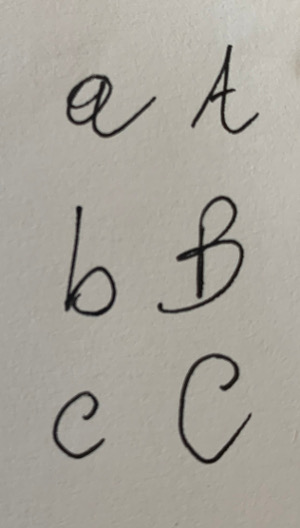 a A
b B
c C